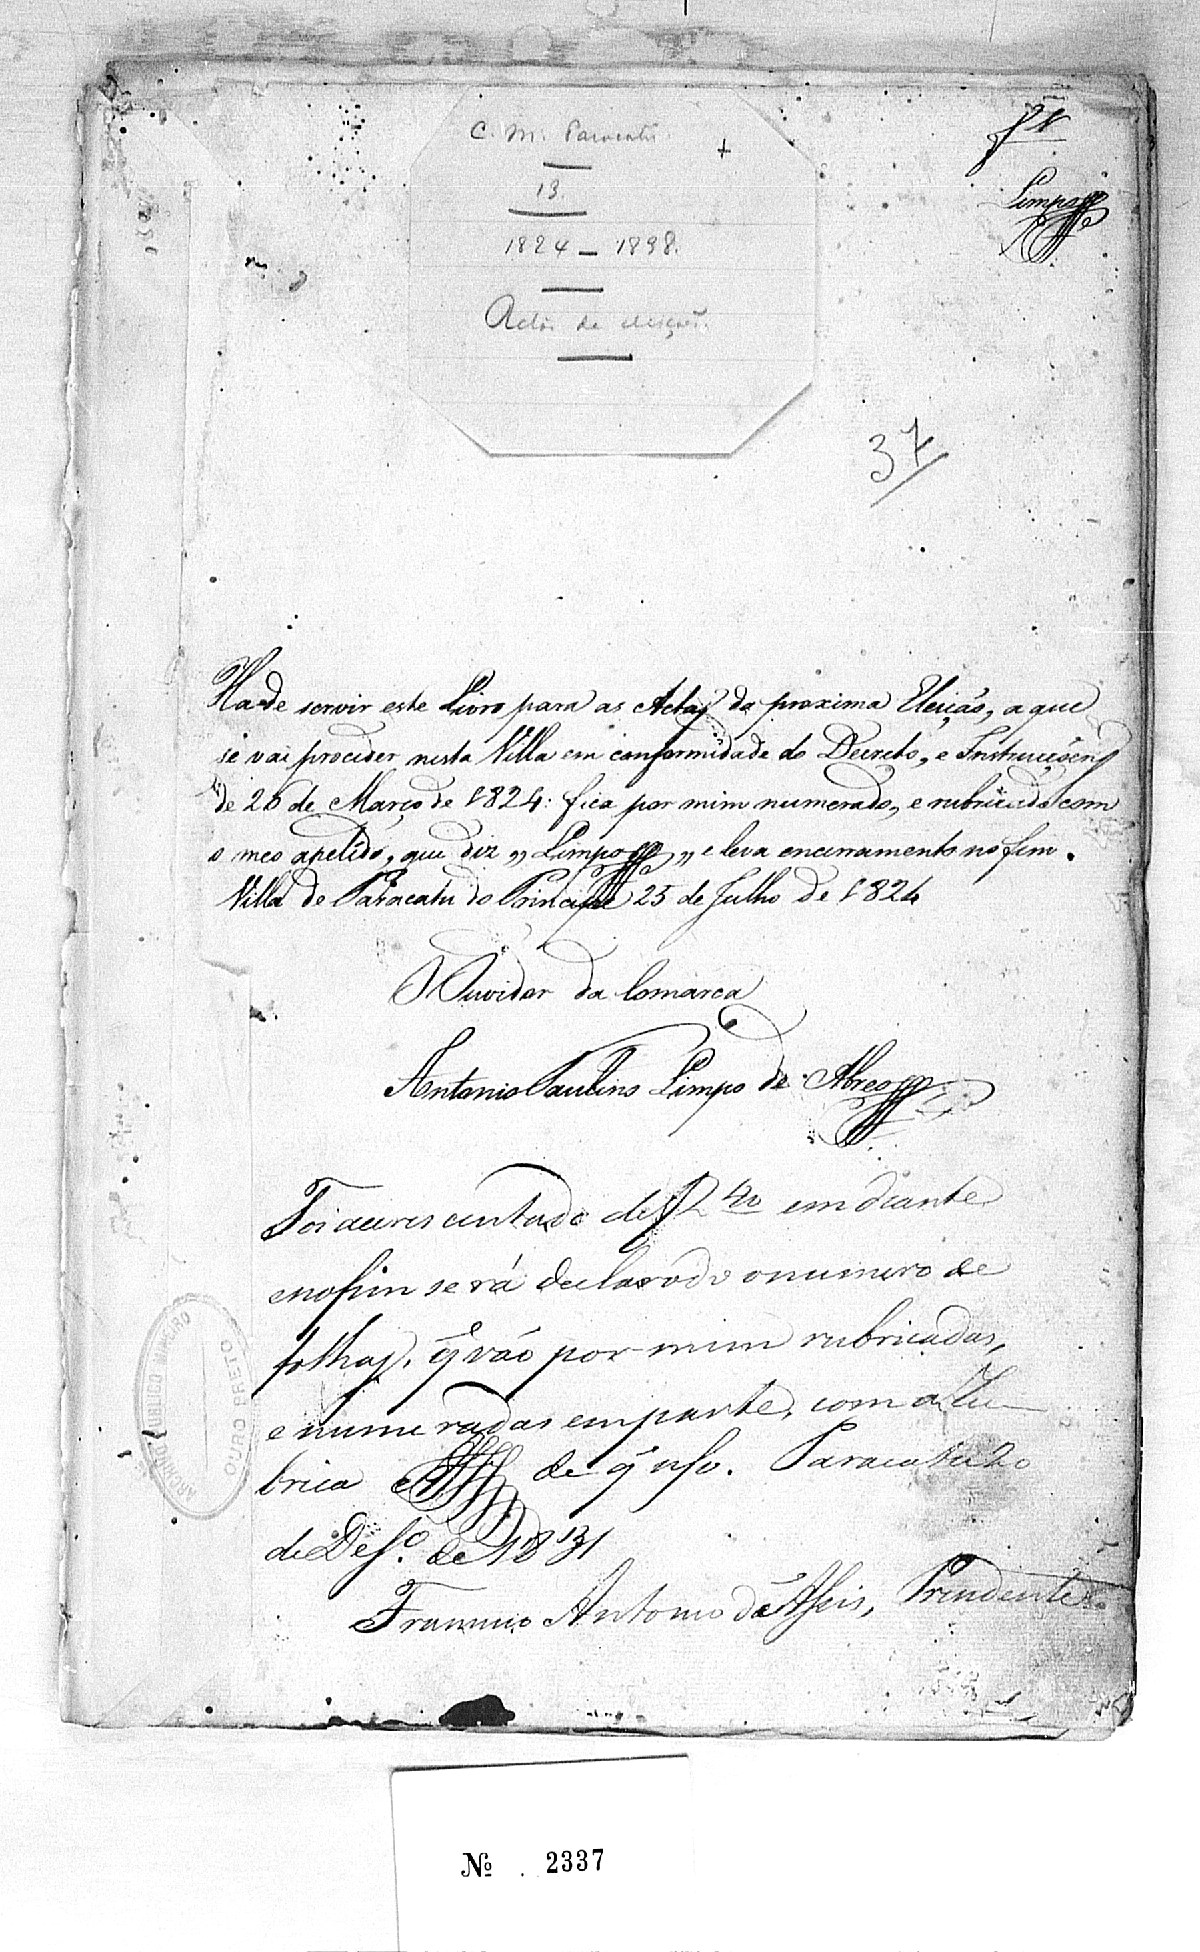 C. M. Paracatú
13.
1824 — 1898.
Actas de eleições.
Limpo
37
Hade servir este Livro para as Actas da proxima Eleição, a que
se vai proceder nesta Villa em conformidade do Decreto, e Instrucçoens
de 26 de Março de 1824: fica por mim numerado, e rubricado com
o meo apelido, que diz „ Limpo „ e leva encerramento no fim.
Villa do Paracatu do Principe 25 de Julho de 1824
O Ouvidor da Comarca
Antonio Paulino Limpo de Abreo
Foi acrescentado de em diante
enofim será declarado o numero de
folhas, q̃ vão por mim rubricadas,
e numeradas em parte, com a Ru-
brica de q̃ uso. Paracatu 20
de Dezº. de 1831
Antonio d'Assis, Prezidente
ARCHIVO PUBLICO MINEIRO
OURO PRETO
Nº 2337